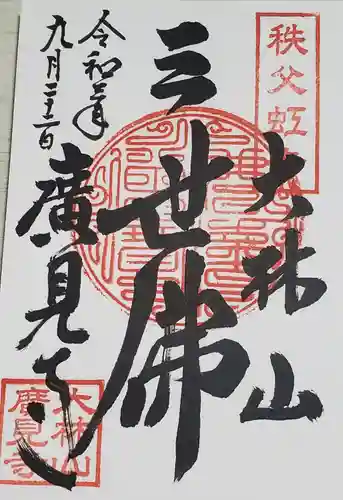 秩父虹
大林山
三世佛
廣見寺
令和三年
九月二十二日
大林山
廣見寺